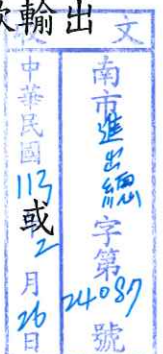 欲輸出
文
南市進出總字第24087號
中華民國113
或
2月26日